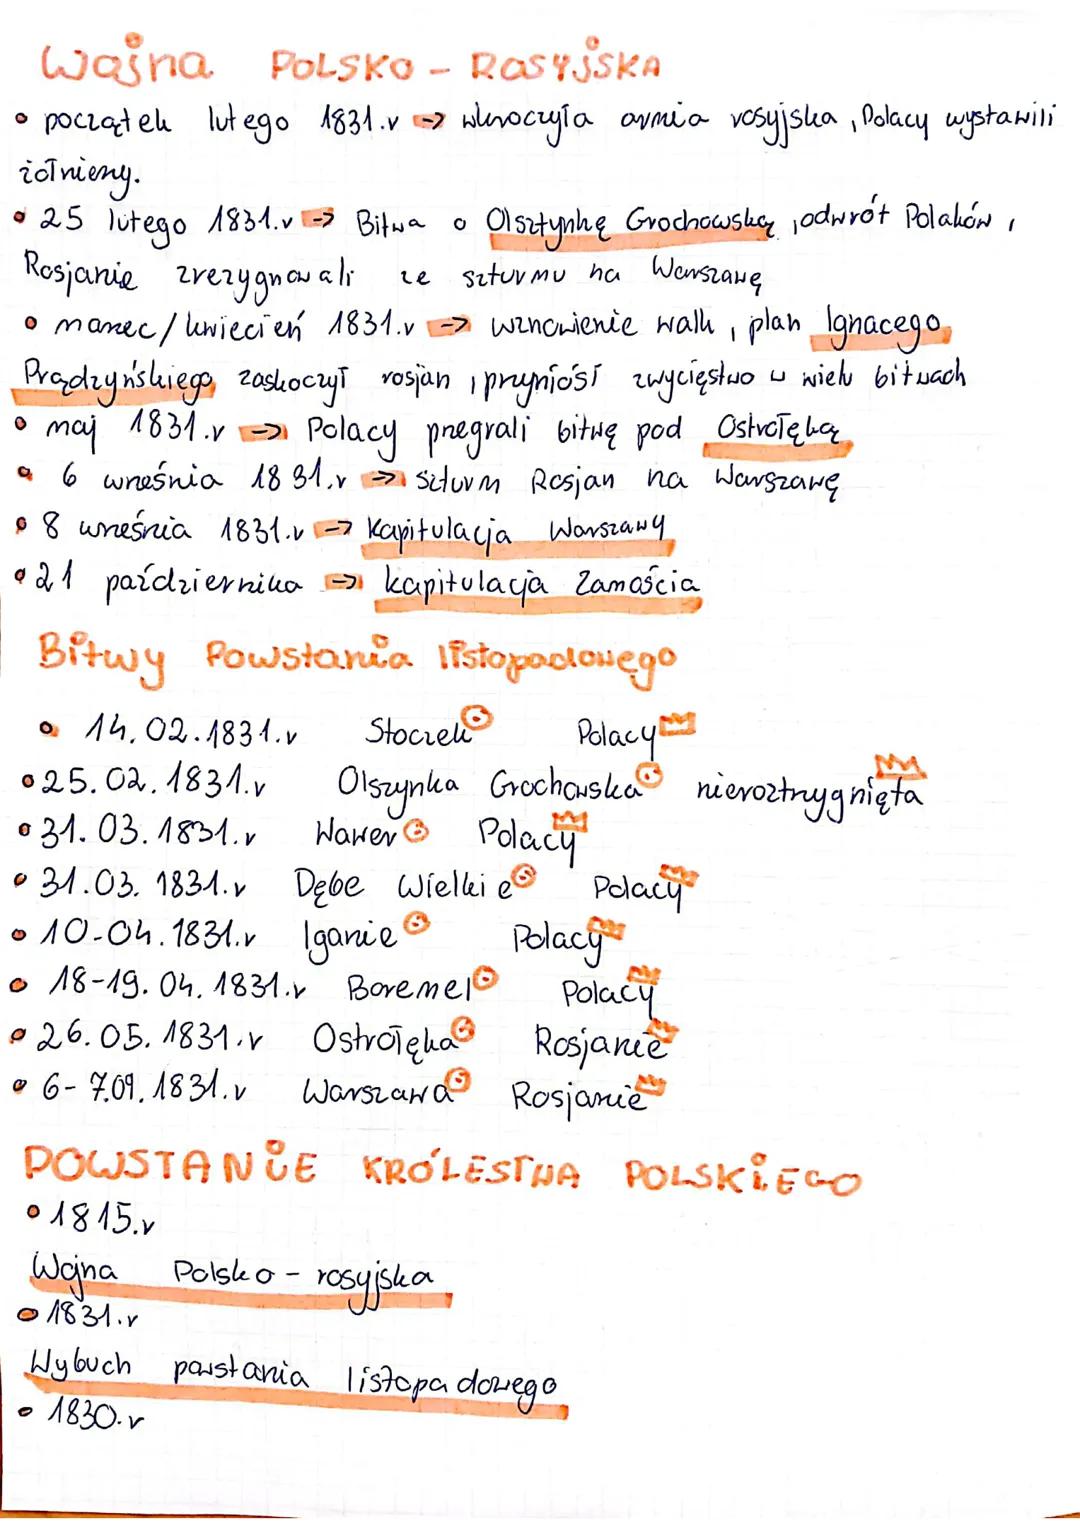 Wojna POLSKO - ROSYJSKA
• początek lutego 1831.r -> wkroczyła armia rosyjska, Polacy wystawili
żołnierzy.
• 25 lutego 1831.r -> Bitwa o Olsztynkę Grochowską, odwrót Polaków,
Rosjanie zrezygnowali ze szturmu na Warszawę
• marzec/kwiecień 1831.r -> wznowienie walk, plan Ignacego
Prądzyńskiego zaskoczył rosjan, przyniósł zwycięstwo w wielu bitwach
• maj 1831.r -> Polacy przegrali bitwę pod Ostrołęką
• 6 września 1831.r -> szturm Rosjan na Warszawę
• 8 września 1831.r -> Kapitulacja Warszawy
• 21 października -> kapitulacja Zamościa
Bitwy Powstania listopadowego
• 14.02.1831.r Stoczek Polacy
• 25.02.1831.r Olszynka Grochowska nieroztrzygnięta
• 31.03.1831.r Wawer Polacy
• 31.03.1831.r Dębe Wielkie Polacy
• 10-04.1831.r Iganie Polacy
• 18-19.04.1831.r Boremel Polacy
• 26.05.1831.r Ostrołęka Rosjanie
• 6-7.09.1831.r Warszawa Rosjanie
POWSTANIE KRÓLESTWA POLSKIEGO
• 1815.r
Wojna Polsko - rosyjska
• 1831.r
Wybuch powstania listopadowego
• 1830.r